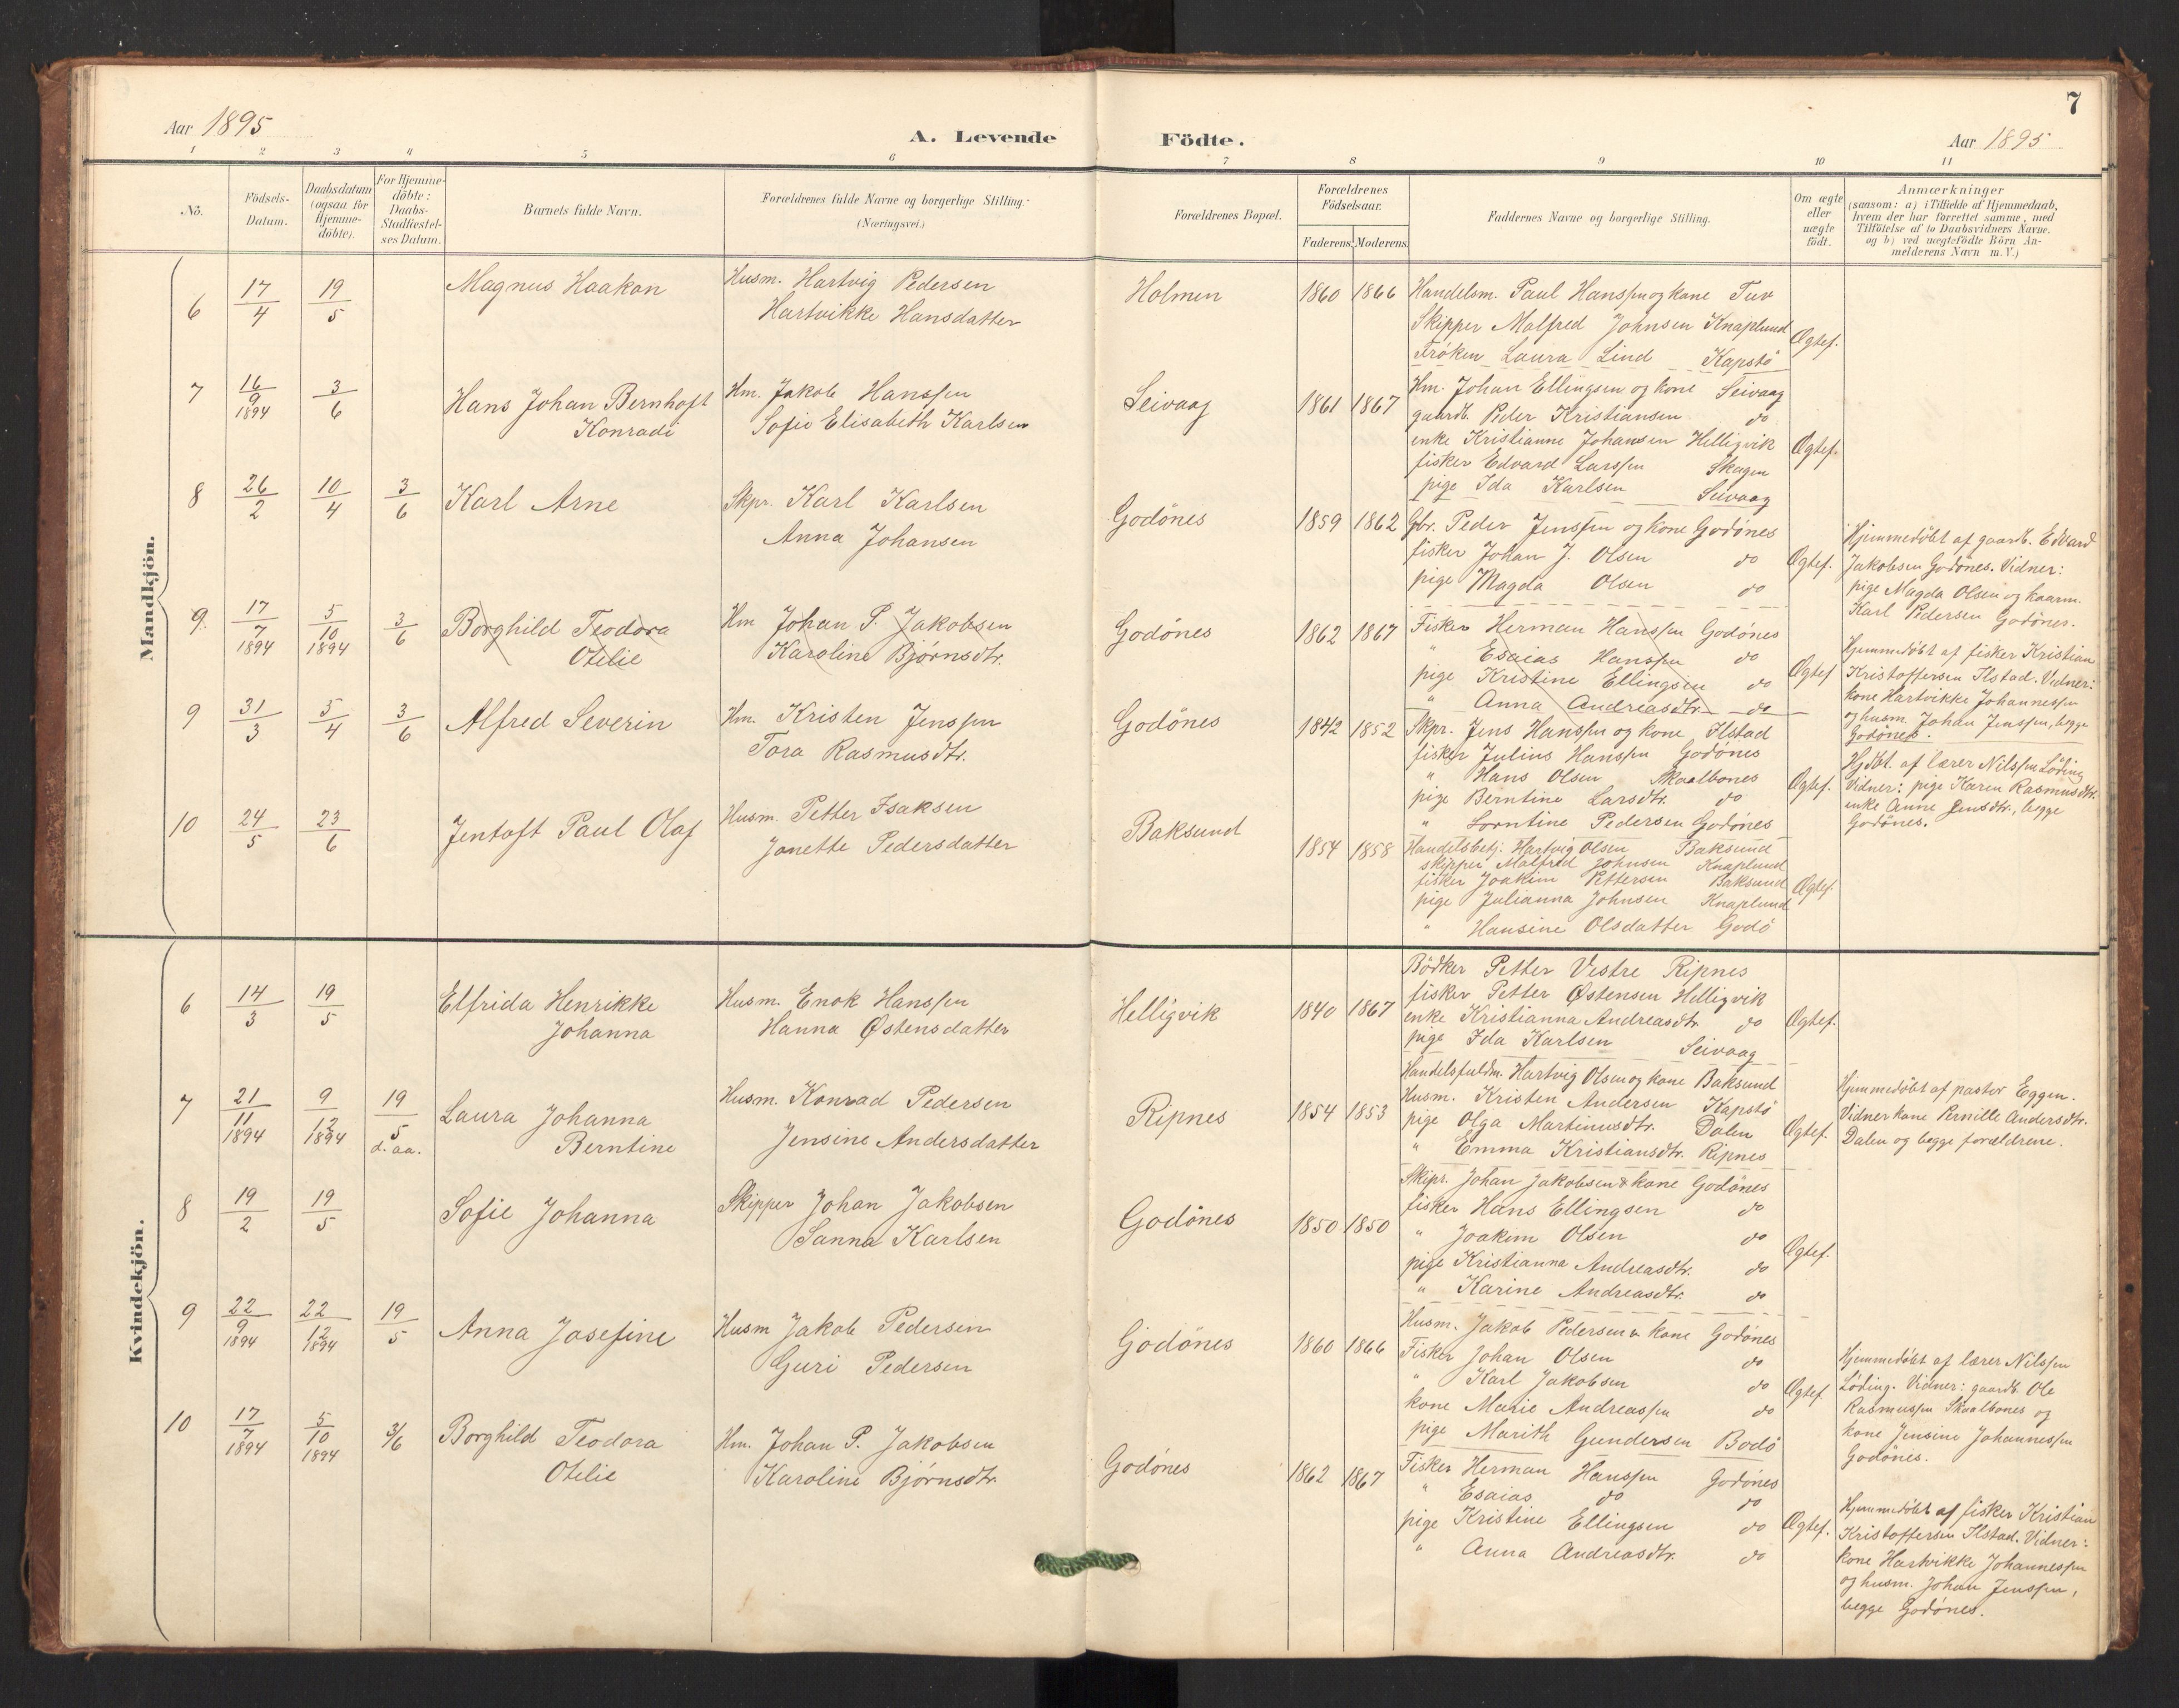 7
Aar 1895
A. Levende Födte.
Aar 1895
1 2 3 4 5 6 7 8 9 10 11
No.
Födsels-
Datum.
Daabsdatum
(ogsaa for
Hjemme-
döbte).
For Hjemme-
döbte:
Daabs-
Stadfæstel-
ses Datum.
Barnets fulde Navn.
Forældrenes fulde Navne og borgerlige Stilling.
(Næringsvei.)
Forældrenes Bopæl.
Forældrenes
Födselsaar.
Faderens. Moderens.
Faddernes Navne og borgerlige Stilling.
Om ægte
eller
uægte
födt.
Anmærkninger
(saasom: a) i Tilfælde af Hjemmedaab,
hvem der har forrettet samme, med
Tilföielse af to Daabsvidners Navne.
og b) ved uægtefödte Börn An-
melderens Navn m. V.)
Mandkjön.
6 17/4 19/5 Magnus Haakon
Husm. Hartvig Pedersen
Hartvikke Hansdatter
Holmen 1860 1866
Handelsm. Paul Hanssen og kone Tuv
Skipper Malfred Johnsen Knaplund
Frøken Laura Lind Kapstö
Ægtef.
7 16/9 1894 3/6 Hans Johan Bernhoft
Konradi
Hm. Jakob Hanssen
Sofie Elisabeth Karlsen
Seivaag 1861 1867
Hm. Johan Ellingsen og kone Seivaag
gaardb. Peder Kristiansen do
enke Kristianne Johansen Helligvik
fisker Edvard Larssen Skagen
pige Ida Karlsen Seivaag
Ægtef.
8 26/2 10/4 3/6 Karl Arne
Skpr. Karl Karlsen
Anna Johansen
Godönes 1859 1862
Gbr. Peder Jenssen og kone Godönes
fisker Johan J. Olsen do
pige Magda Olsen do
Ægtef.
Hjemmedöbt af gaardb. Edvard
Jakobsen Godönes. Vidner:
pige Magda Olsen og kaarm.
Karl Pedersen Godönes.
9. 17/7 1894 5/10 1894 3/6 Borghild Teodora
Otelie
Hm Johan P. Jakobsen
Karoline Bjørnsdtr.
Godönes 1862 1867
Fisker Herman Hanssen Godönes
" Esaias Hanssen do
pige Kristine Ellingsen do
" Anna Andreasdtr. do
Ægtef
Hjemmedöbt af fisker Kristian
Kristoffersen Ilstad. Vidner:
kone Hartvikke Johannessen
og husm. Johan Jenssen, begge
Godönes.
9 31/3 5/4 3/6 Alfred Severin
Hm. Kristen Jenssen
Tora Rasmusdtr.
Godönes 1842 1852
Skpr. Jens Hanssen og kone Ilstad
fisker Julius Hanssen Godönes
" Hans Olsen Skaalbones
pige Berntine Larsdtr. do
" Lorntine Pedersen Godönes
Ægtef.
Hjdbt. af lærer Nilssen Löding
Vidner: pige Karen Rasmusdtr.
enke Anne Jensdtr., begge
Godönes.
10 24/5 23/6 Jentoft Paul Olaf
Husm. Petter Isaksen
Janette Pedersdatter
Baksund 1854 1858
Handelsbetj. Hartvig Olsen Baksund
skipper Malfred Johnsen Knaplund
fisker Joakim Pettersen Baksund
pige Julianna Johnsen Knaplund
" Hansine Olsdatter Godö
Ægtef.
Kvindekjön.
6 14/3 19/5 Elfrida Henrikke
Johanna
Husm. Enok Hanssen
Hanna Østensdatter
Helligvik 1840 1867
Bödker Petter Vestre Ripnes
fisker Petter Østensen Helligvik
enke Kristianna Andreasdtr do
pige Ida Karlsen Seivaag
Ægtef.
7 21/11 1894 9/12 1894 19/5 d. aa. Laura Johanna
Berntine
Husm. Konrad Pedersen
Jensine Andersdatter
Ripnes 1854 1853
Handelsfuldm. Hartvig Olsen og kone Baksund
Husm. Kristen Andersen Kapstö
pige Olga Martinusdtr. Dalen
" Emma Kristiansdtr. Ripnes
Ægtef.
Hjemmedöbt af pastor Eggen.
Vidner kone Pernille Andersdtr.
Dalen og begge forældrene.
8 19/2 19/5 Sofie Johanna
Skipper Johan Jakobsen
Sanna Karlsen
Godönes 1850 1850
Skipr. Johan Jakobsen & kone Godönes
fisker Hans Ellingsen do
" Joakim Olsen do
pige Kristianna Andreasdtr. do
" Karine Andreasdtr. do
Ægtef.
9 22/9 1894 22/12 1894 19/5 Anna Josefine
Husm Jakob Pedersen
Guri Pedersen
Godönes 1860 1866
Husm. Jakob Pedersen & kone Godönes
Fisker Johan Olsen do
" Karl Jakobsen do
kone Marie Andreassen do
pige Marith Gundersen Bodö
Ægtef
Hjemmedöbt af lærer Nilssen
Löding. Vidner: gaardb. Ole
Rasmussen Skaalbones og
kone Jensine Johannessen
Godönes.
10 17/7 1894 5/10 1894 3/6 Borghild Teodora
Otelie
Hm. Johan P. Jakobsen
Karoline Bjørnsdtr.
Godönes 1862 1867
Fisker Herman Hanssen Godönes
" Esaias do do
pige Kristine Ellingsen do
" Anna Andreasdtr. do
Ægtef.
Hjemmedöbt af fisker Kristian
Kristoffersen Ilstad. Vidner:
kone Hartvikke Johannessen
og husm. Johan Jenssen,
begge Godönes.